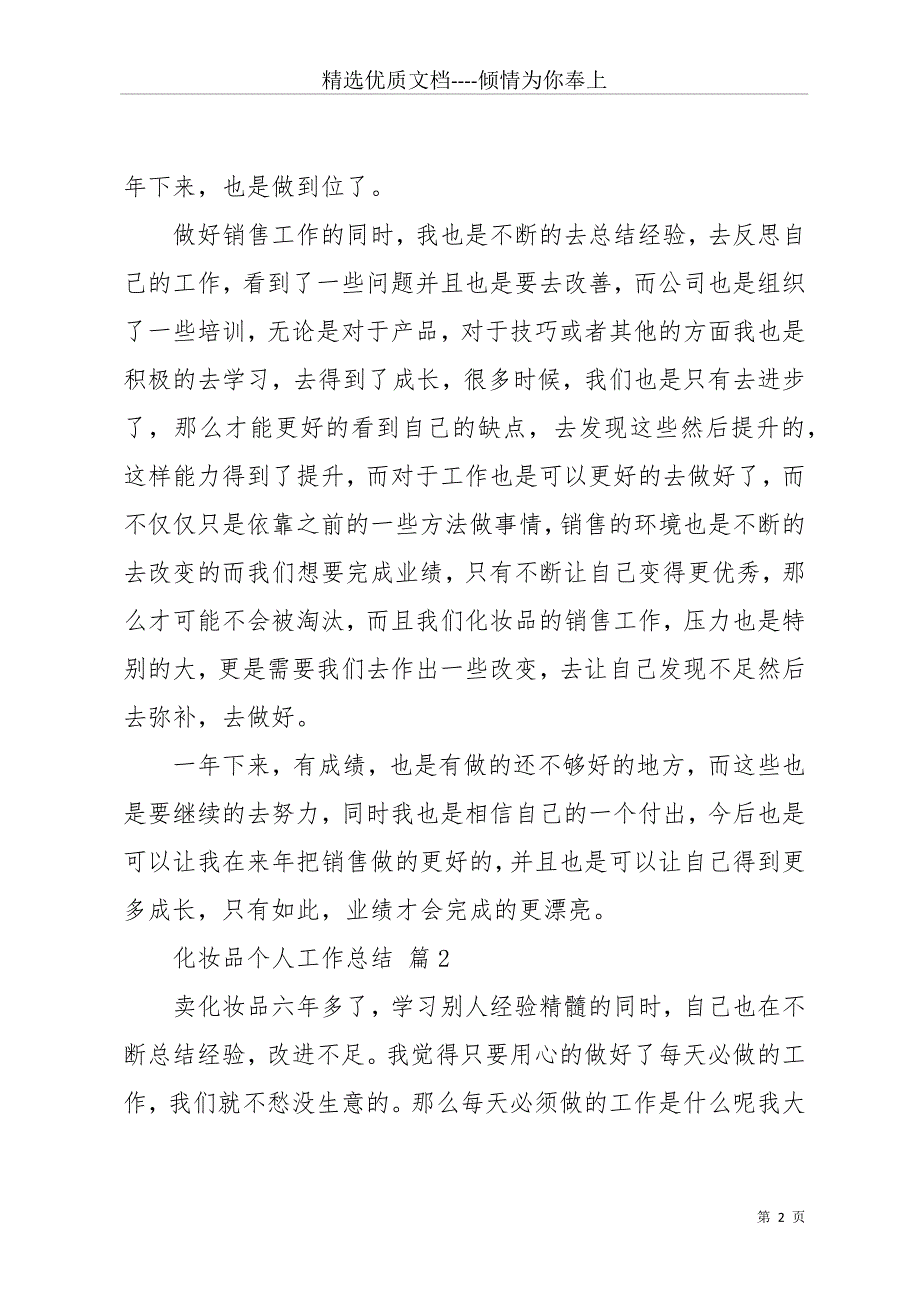 精选优质文档----倾情为你奉上
年下来，也是做到位了。
做好销售工作的同时，我也是不断的去总结经验，去反思自
己的工作，看到了一些问题并且也是要去改善，而公司也是组织
了一些培训，无论是对于产品，对于技巧或者其他的方面我也是
积极的去学习，去得到了成长，很多时候，我们也是只有去进步
了，那么才能更好的看到自己的缺点，去发现这些然后提升的，
这样能力得到了提升，而对于工作也是可以更好的去做好了，而
不仅仅只是依靠之前的一些方法做事情，销售的环境也是不断的
去改变的而我们想要完成业绩，只有不断让自己变得更优秀，那
么才可能不会被淘汰，而且我们化妆品的销售工作，压力也是特
别的大，更是需要我们去作出一些改变，去让自己发现不足然后
去弥补，去做好。
一年下来，有成绩，也是有做的还不够好的地方，而这些也
是要继续的去努力，同时我也是相信自己的一个付出，今后也是
可以让我在来年把销售做的更好的，并且也是可以让自己得到更
多成长，只有如此，业绩才会完成的更漂亮。
化妆品个人工作总结 篇2
卖化妆品六年多了，学习别人经验精髓的同时，自己也在不
断总结经验，改进不足。我觉得只要用心的做好了每天必做的工
作，我们就不愁没生意的。那么每天必须做的工作是什么呢我大
第 2 页